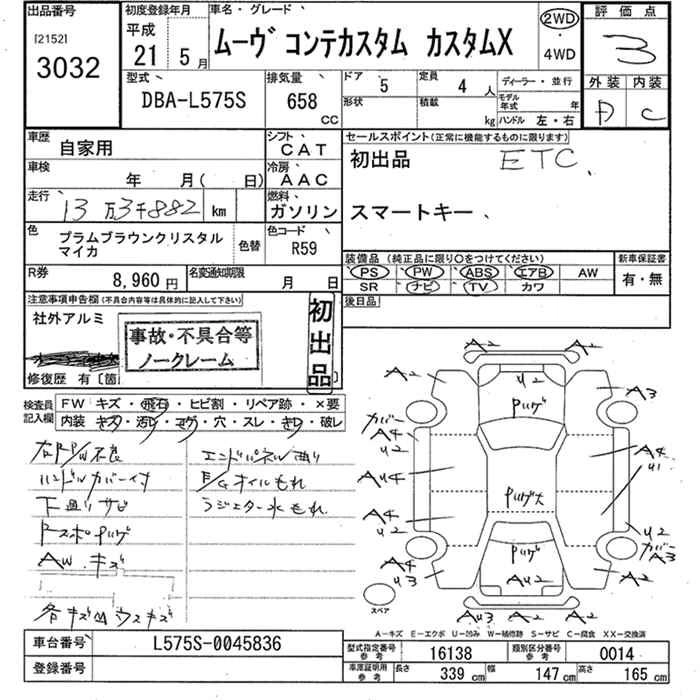 出品番号
[2152]
3032
初度登録年月
平成
21 5月
車名・グレード
ムーヴ コンテカスタム カスタムX
2WD
・
4WD
評価点
3
外装 内装
D C
型式
DBA-L575S
排気量
658
CC
ドア 5
定員 4人
形状
積載 kg
ディーラー・並行
モデル年式 年
ハンドル 左・右
車歴 自家用
シフト CAT
車検 年 月( 日)
冷房 AAC
走行 13万3千882 km
燃料 ガソリン
色 プラムブラウンクリスタル
マイカ
色替
色コード R59
R券 8,960円
名変通知期限 月 日
セールスポイント(正常に機能するものに限ります)
初出品 ETC、
スマートキー、
装備品(純正品に限り○をつけてください)
PS PW ABS エアB AW
SR ナビ TV カワ
新車保証書
有・無
後日品
注意事項申告欄(不具合内容等は具体的に記入して下さい)
社外アルミ
事故・不具合等
ノークレーム
初出品
修復歴 有〔箇
検査員
記入欄
FW キズ・飛石・ヒビ割・リペア跡・×要
内装・キズ・汚レ・コゲ・穴・スレ・きレ・破レ
右P/W不良
ハンドルカバー付
下廻りサビ
AW.キズ
各キズ凹ウスキズ
エンドパネル凹り
E/Gオイルもれ
ラジエター水もれ
A2
A2
A2
U2
A2
A3
カバー
A4
U2
A4
U1
AU4
A4
U2
U2
カバー
A3
A4
U3
AU2
A2
AU3
A2
A2
スペア
A-キズ E-エクボ U-凹み W-補修跡 S-サビ C-腐食 XX-交換済
車台番号 L575S-0045836
登録番号
型式指定番号
参考
16138
類別区分番号
参考
0014
車庫証明用
参考
長さ 339cm
幅 147cm
高さ 165cm